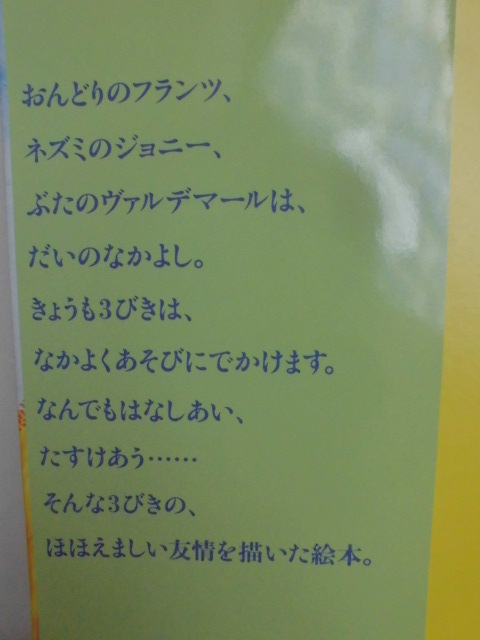 おんどりのフランツ、
ネズミのジョニー、
ぶたのヴァルデマールは、
だいのなかよし。
きょうも3びきは、
なかよくあそびにでかけます。
なんでもはなしあい、
たすけあう……
そんな3びきの、
ほほえましい友情を描いた絵本。